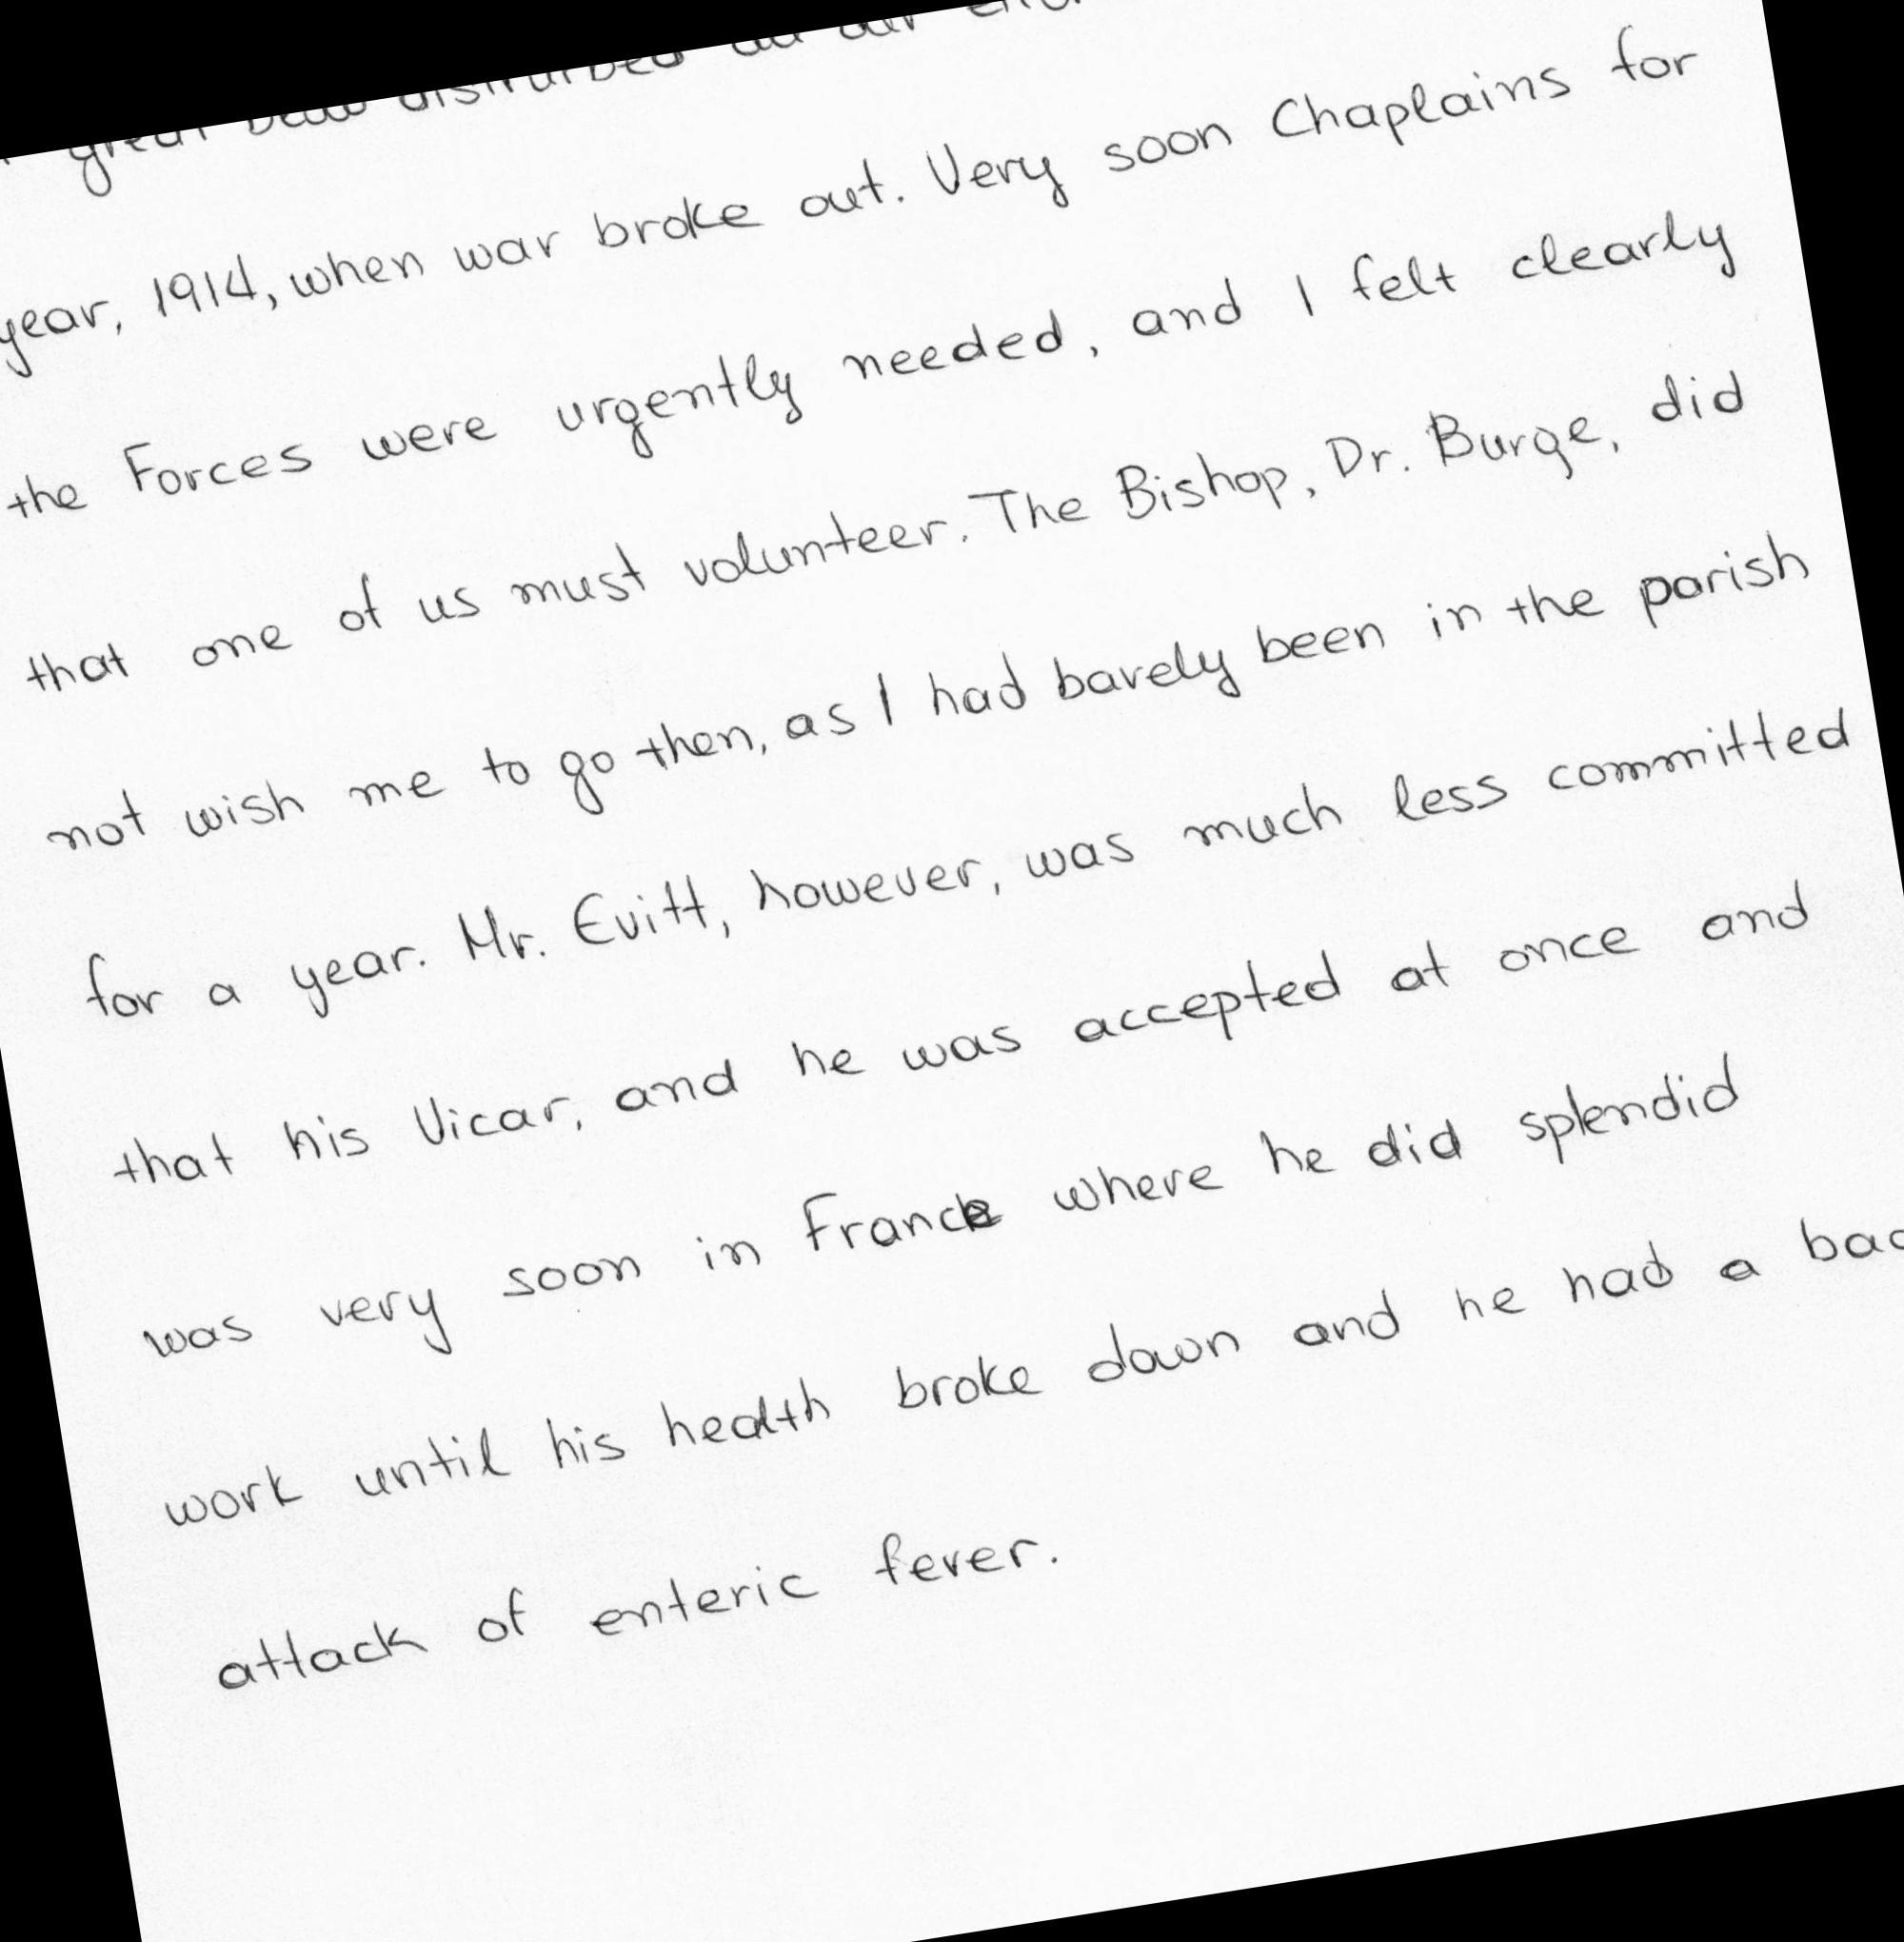 great blow disturbed all our
year, 1914, when war broke out. Very soon Chaplains for
the Forces were urgently needed, and I felt clearly
that one of us must volunteer. The Bishop, Dr. Burge, did
not wish me to go then, as I had barely been in the parish
for a year. Mr. Evitt, however, was much less committed
that his Vicar, and he was accepted at once and
was very soon in France where he did splendid
work until his health broke down and he had a bad
attack of enteric fever.